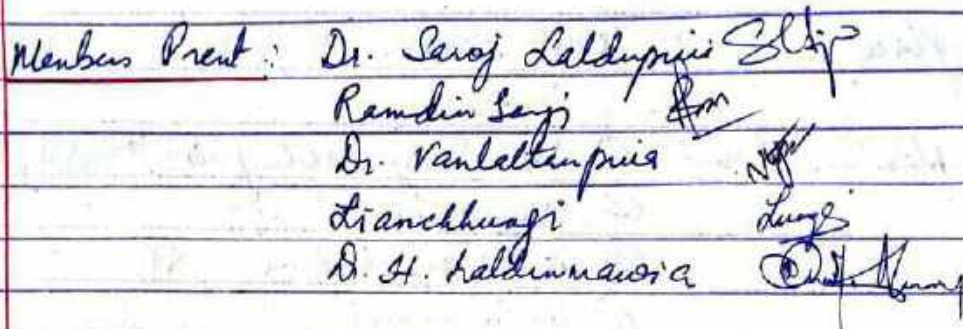 Members Prent : Dr. Saroj Laldupuii
Ramdin Sangi
Dr. Vanlaltanpuia
Lianchhungi
Dr. H. Laldinmawia